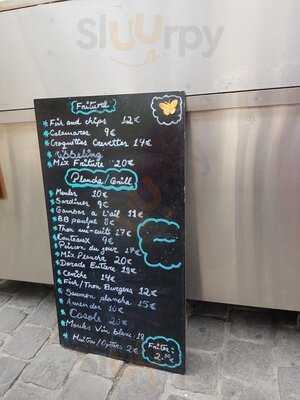 Sluurpy
Friture
Fish and chips 12€
Calamares 9€
Croquettes Crevettes 14€
Kibbeling
Mix Friture 20€
Plancha/Grill
Moules 10€
Sardines 9€
Gambas a L'ail 12€
BB poulpe 8€
Thon mi-cuit 17€
Couteaux 9€
Poisson du jour 17€
Mix Plancha 20€
Dorade Entiere 18€
Ceviche 14€
Fish/Thon Burgers 12€
Saumon plancha 15€
Amandes 10€
Casole 20€
Moules Vin blanc 12
Huitres/Oysters 2€
Frites:
2.50€